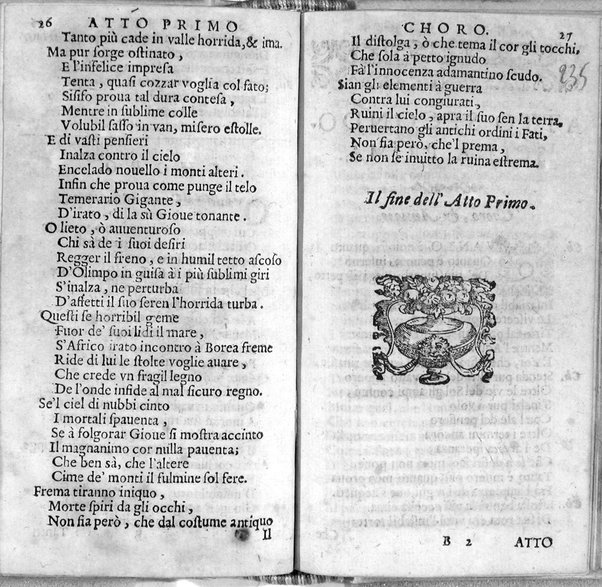 26 ATTO PRIMO
Tanto più cade in valle horrida, & ima.
Ma pur sorge ostinato,
E l'infelice impresa
Tenta, quasi cozzar voglia col fato;
Sisifo proua tal dura contesa,
Mentre in sublime colle
Volubil sasso in van, misero estolle.
E di vasti pensieri
Inalza contro il cielo
Encelado nouello i monti alteri.
Infin che proua come punge il telo
Temerario Gigante,
D'irato, di la sù Gioue tonante.
O lieto, ò auuenturoso
Chi sà de i suoi desiri
Regger il freno, e in humil tetto ascoso
D'Olimpo in guisa à i più sublimi giri
S'inalza, ne perturba
D'affetti il suo seren l'horrida turba.
Questi se horribil geme
Fuor de' suoi lidi il mare,
S'Africo irato incontro à Borea freme
Ride di lui le stolte voglie auare,
Che crede vn fragil legno
De l'onde infide al mal sicuro regno.
Se'l ciel di nubbi cinto
I mortali spauenta,
Se à folgorar Gioue si mostra accinto
Il magnanimo cor nulla pauenta;
Che ben sà, che l'altere
Cime de' monti il fulmine sol fere.
Frema tiranno iniquo,
Morte spiri da gli occhi,
Non sia però, che dal costume antiquo
Il
CHORO. 27
Il distolga, ò che tema il cor gli tocchi,
Che sola à petto ignudo
Fà l'innocenza adamantino scudo.
235
Sian gli elementi à guerra
Contra lui congiurati,
Ruini il cielo, apra il suo sen la terra,
Peruertano gli antichi ordini i Fati,
Non sia però, che'l prema,
Se non se inuitto la ruina estrema.
Il fine dell' Atto Primo.
B 2 ATTO